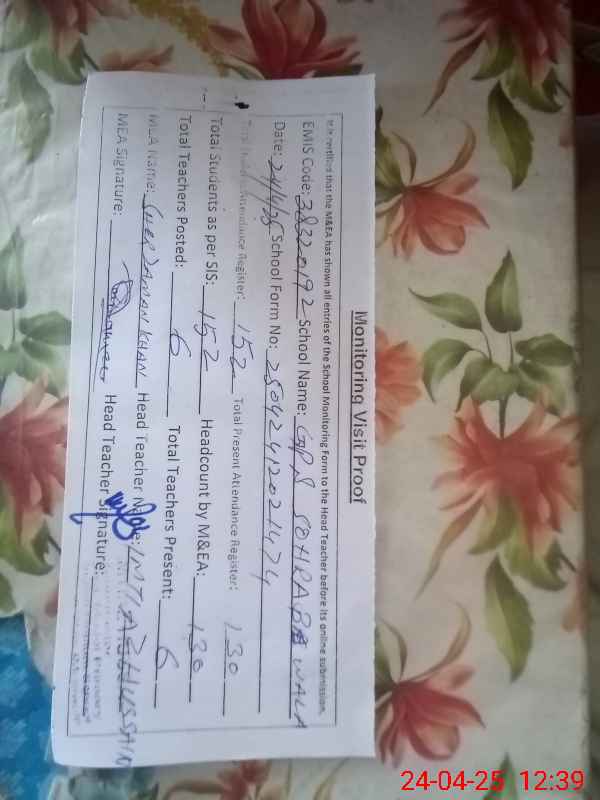 Monitoring Visit Proof
It is certified that the M&EA has shown all entries of the School Monitoring Form to the Head Teacher before its online submission.
EMIS Code: 38320192 School Name: GPS SOHRABWALA
Date: 24/4/25 School Form No: 25042412021474
Total Attendance Register: 152 Total Present Attendance Register: 130
Total Students as per SIS: 152 Headcount by M&EA: 130
Total Teachers Posted: 6 Total Teachers Present: 6
MEA Name: SHER ZAMAN KHAN Head Teacher Name: IMTIAZ HUSSAIN
MEA Signature: Head Teacher Signature:
24-04-25 12:39